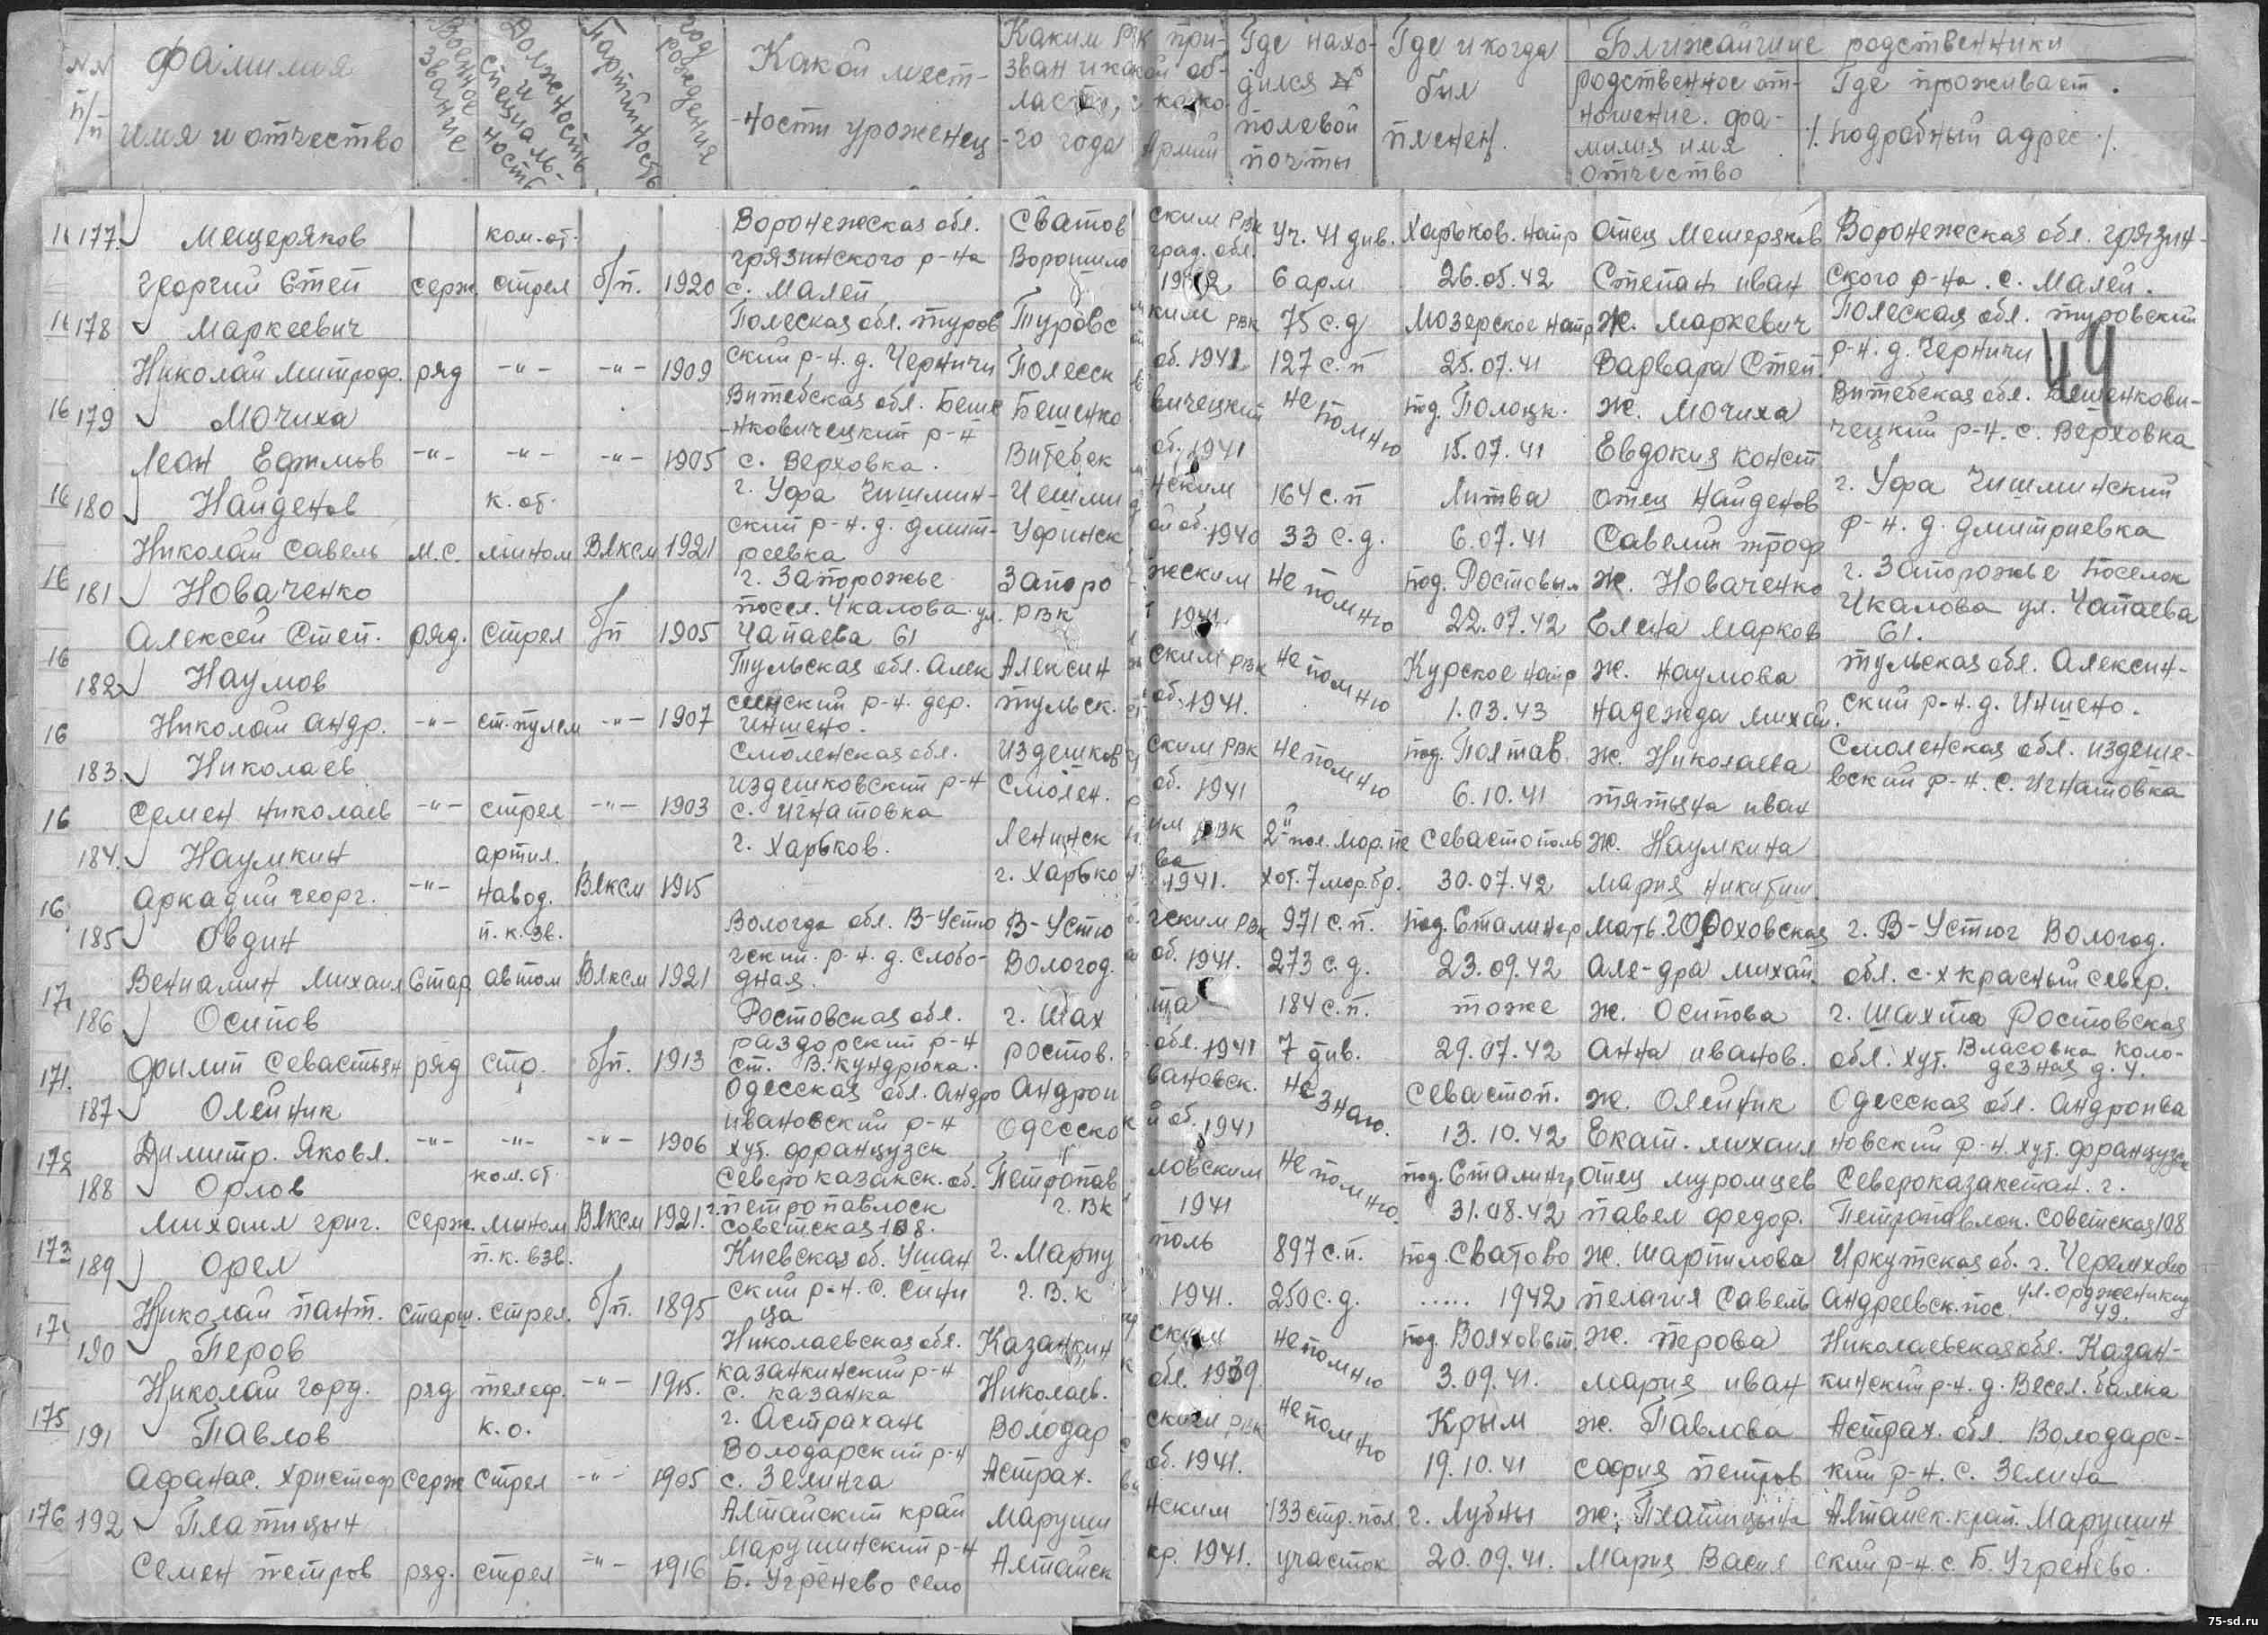 №№ п/п
Фамилия имя и отчество
Военное звание
Должность и специальность
Партийность
Год рождения
Какой местности уроженец
Каким РВК призван и какой области, с какого года Армии
Где находился № полевой почты
Где и когда был пленен
Ближайшие родственники
родственное отношение. фамилия имя отчество
Где проживает ./. подробный адрес ./.
177. Мещеряков ком.от. Воронежская обл. Сватовским РВК Уч. 41 див. Харьков. напр Отец Мещеряков Воронежская обл. грязин-
Георгий Степ серж. стрел б/п. 1920 грязинского р-на с. Малей Ворошиловград. обл. 1942 6 арм 26.05.42 Степан иван ского р-на. с. Малей.
178 Маркевич Полеская обл. туров Туровским РВК 75 с.д Мозерское напр Ж. Маркевич Полеская обл. туровский
Николай митроф. ряд -"- -"- 1909 ский р-н. д. Черничи Полесск об. 1941 127 с.п 25.07.41 Варвара Степ. р-н. д. Черничи
49
179 Мочиха Витебская обл. Беше Бешенковичецкий не помню под. Полоцк. ж. Мочиха Витебская обл. Бешенкови-
Леон Ефимов -"- -"- -"- 1905 -нковичецкий р-н с. Верховка. Витебск об. 1941 15.07.41 Евдокия конст чецкий р-н. с. Верховка
180 Найденов к.от. г. Уфа Чишмин- Чешминским 164 с.п Литва отец Найденов г. Уфа Чишминский
Николай Савель м.с. мином ВЛКСМ 1921 ский р-н. д. дмит- реевка Уфинской об. 1940 33 с.д. 6.07.41 Савелий троф р-н. д. дмитриевка
181 Новаченко г. Запорожье Запорожским не помню под. Ростовым Ж. Новаченко г. Запорожье поселок
Алексей Степ. ряд. стрел б/п 1905 посел. Чкалова ул. Чапаева 61 РВК 1941 22.07.42 Елена Марков Чкалова ул. Чапаева 61.
182 Наумов Тульская обл. Алек Алексинским РВК не помню Курское напр ж. Наумова тульская обл. Алексин-
Николай андр. -"- ст.пулем -"- 1907 синский р-н. дер. иншено. тульск. об. 1941. 1.03.43 надежда михай. ский р-н. д. Иншено.
183. Николаев Смоленская обл. издешковским РВК не помню под. Полтав. ж. Николаева Смоленская обл. издеше-
Семен николаев -"- стрел -"- 1903 издешковский р-н с. игнатовка Смолен. об. 1941 6.10.41 татьяна иван вский р-н. с. Игнатовка
184. Наумкин артил. г. Харьков. Ленинским РВК 2й пол. мор. пе Севастополь ж. Наумкина
Аркадий георг. -"- навод. ВЛКСМ 1915 г. Харькова 1941. хот. 7 мор. бр. 30.07.42 мария никитиш
185 Овдин п.к.зв. Вологда обл. В-Устю В-Устюгским РВК 971 с.п. под. Сталингр мать. гороховская г. В-Устюг Вологод.
Вениамин михаил Стар автом ВЛКСМ 1921 гский. р-н. д. слобо- дная. Вологод. об. 1941. 273 с.д. 23.09.42 але-дра михай. обл. с-х красный север.
186 Осипов Ростовская обл. г. Шахта 184 с.п. тоже ж. осипова г. Шахта Ростовская
Филип Севастьян ряд стр. б/п. 1913 раздорский р-н ст. В. кундрюка. ростов. обл. 1941 7 див. 29.07.42 анна иванов. обл. хут. Власовка Коло- дезная д. 4.
187 Олейник Одесская обл. андро Андроивановск. не знаю. Севастоп. ж. олейник Одесская обл. андроива
Димитр. Яковл. -"- -"- -"- 1906 ивановский р-н хут. французск Одесской об. 1941 13.10.42 Екат. михаил новский р-н. хут. французск
188 Орлов ком.от. Североказахск. об. Петропавловским не помню. под. Сталингр отец муромцев Североказакстан. г.
Михаил григ. серж. мином ВЛКСМ 1921. г. петропавлоск советская 108. г. Вк 1941 31.08.42 павел федор. Петропавлок. советская 108
189 Орел п.к. взв. Киевская об. Уман г. Мариуполь 897 с.п. под. Сватово ж. шарпилова Иркутская об. г. Черемхово
Николай пант. старш. стрел. б/п. 1895 ский р-н. с. сини ца г. в.к 1941. 250 с.д. ..... 1942 пелагия Савель андреевск. пос. ул. орджоникид 49.
190 Перов Николаевская обл. Казанкинским не помню под. Волховым. ж. перова Николаевская обл. Казан-
Николай горд. ряд телеф. -"- 1915. казанкинский р-н с. казанка Николаев. обл. 1939. 3.09.41. мария иван кинский р-н. д. Весел. балка
191 Павлов к.о. г. Астрахань Володарским РВК не помню Крым ж. Павлова Астрах. обл. Володарс-
афанас. христоф серж стрел -"- 1905 Володарский р-н с. Зелинга Астрах. об. 1941. 19.10.41 софия петров кий р-н. с. Зелина
192 Платицын Алтайский край Марушинским 133 стр. пол. г. Лубны ж. Платицына Алтайск. край. Марушин
Семен петров ряд. стрел -"- 1916 марушинский р-н Б. Угренево село Алтайск кр. 1941. участок 20.09.41. Мария Васил ский р-н с. Б. Угренево.
171.
172
173
175
176
75-sd.ru